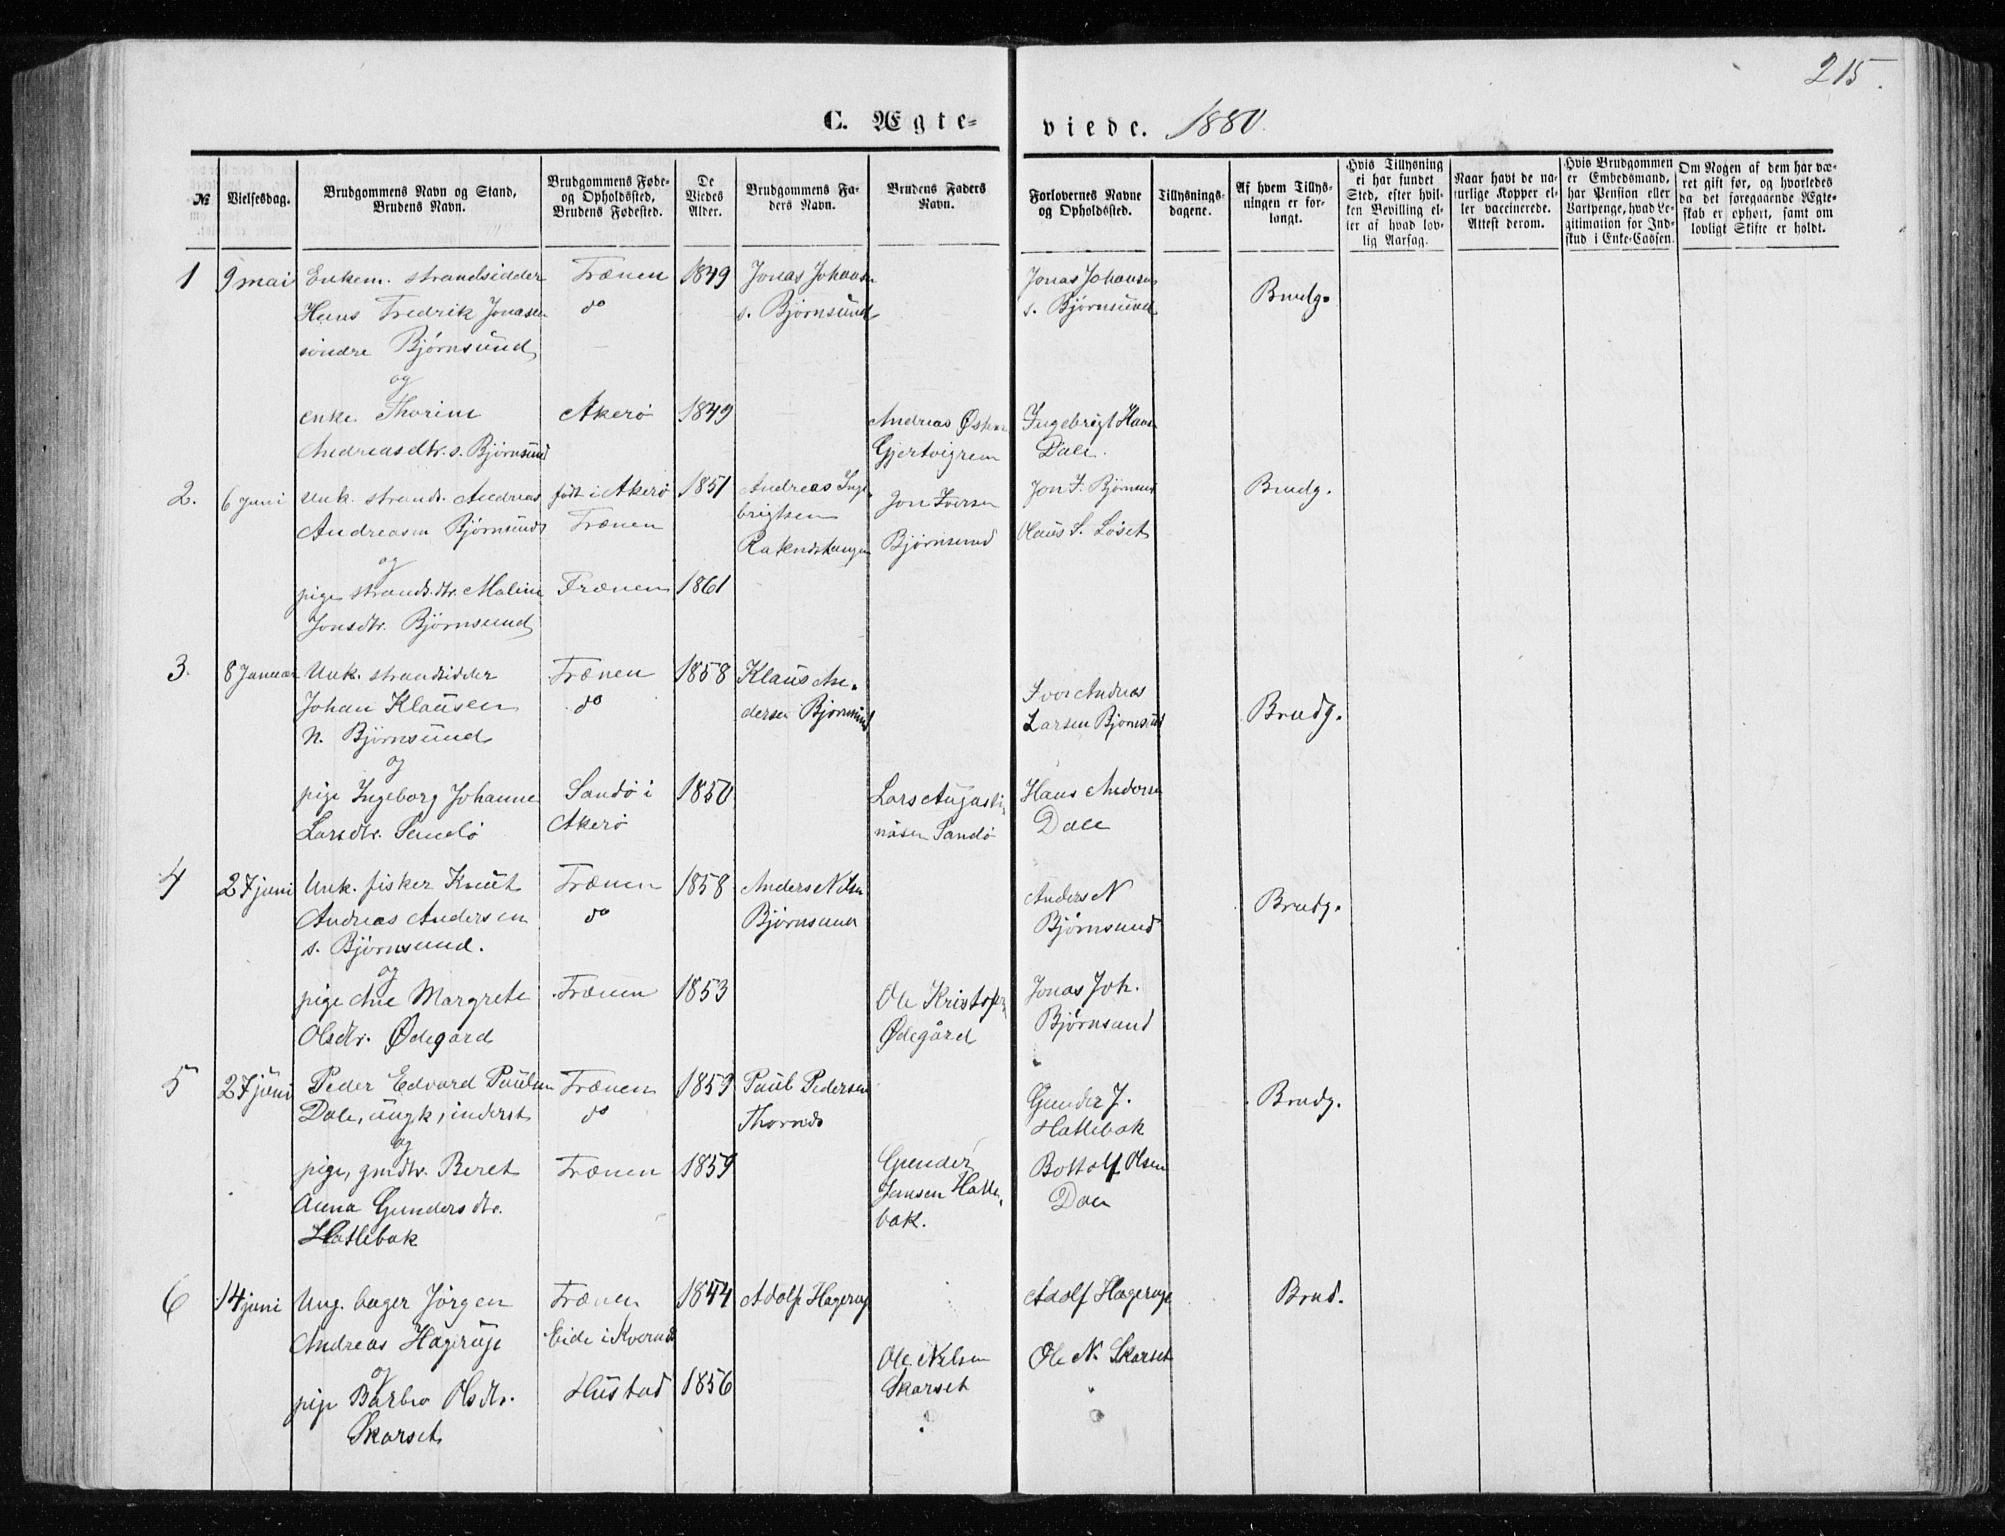 215.
C. Ægteviede. 1880.
№
Vielsesdag.
Brudgommens Navn og Stand,
Brudens Navn.
Brudgommens Føde-
og Opholdssted,
Brudens Fødested.
De
Viedes
Alder.
Brudgommens Fa-
ders Navn.
Brudens Faders
Navn.
Forlovernes Navne
og Opholdssted.
Tillysnings-
dagene.
Af hvem Tillys-
ningen er for-
langt.
Hvis Tillysning
ei har fundet
Sted, efter hvil-
ken Bevilling el-
ler af hvad lov-
lig Aarsag.
Naar havt de na-
turlige Kopper el-
ler vaccinerede.
Attest derom.
Hvis Brudgommen
er Embedsmand,
har Pension eller
Vartpenge, hvad Le-
gitimation for Ind-
skud i Enke-Casen.
Om Nogen af dem har væ-
ret gift før, og hvorledes
da det foregaaende Ægte-
skab er ophørt, samt om
lovligt Skifte er holdt.
1 9 mai
Enkem. strandsidder
Hans Fredrik Jonasen
söndre Björnsund
og
enke Thorine
Andreasdtr. s. Björnsund
Frænen
do
Akerö
1849
1849
Jonas Johansen
s. Björnsund
Andreas Østen
Gjertvigrem
Jonas Johansen
s. Björnsund
Ingebrigt Hans
Dale.
Brudg.
2. 6 juni
Unk. strands. Andreas
Andreasen Björnsund
og
pige strands.dtr. Maline
Jonsdtr. Björnsund
född i Akerö
Frænen
Frænen
1851
1861
Andreas Inge-
brigtsen
Raknestangen
Jon Iversen
Björnsund
Jon I. Björnsund
Olaus S. Löset
Brudg.
3. 8 Januar
Unk. strandsidder
Johan Klausen
N. Björnsund
og
pige Ingeborg Johanne
Larsdtr. Sandö
Frænen
do
Sandö i
Akerö
1858
1850
Klaus An-
dersen Björnsund
Lars Augusti-
nusen Sandö
Iver Andreas
Larsen Björnsund
Hans Andersen
Dale
Brudg.
4 27 juni
Unk. fisker Knut
Andreas Andersen
s. Björnsund.
og
pige Ane Margrete
Olsdtr. Ødegård
Frænen
do
Frænen
1858
1853
Anders Nilsen
Björnsund
Ole Kristofer
Ødegård
Anders N
Björnsund
Jonas Joh.
Björnsund
Brudg.
5 27 juni
Peder Edvard Paulsen
Dale, ungk, inderst
og
pige, gmdtr. Beret
Anna Gundersdtr.
Hatlebak
Frænen
do
Frænen
1859
1859
Paul Pedersen
Gunder
Jensen Hatle-
bak.
Gunder J.
Hatlebak
Bottolf Olsen
Dale
Brudg.
6 14 juni
Ung. bager Jörgen
Andreas Hagerup
og
pige Barbro Olsdtr.
Skarset
Frænen
Eide i Kvernæs
Hustad
1844
1856
Adolf Hagerup
Ole Nilsen
Skarset
Adolf Hagerup
Ole N. Skarset
Brud.